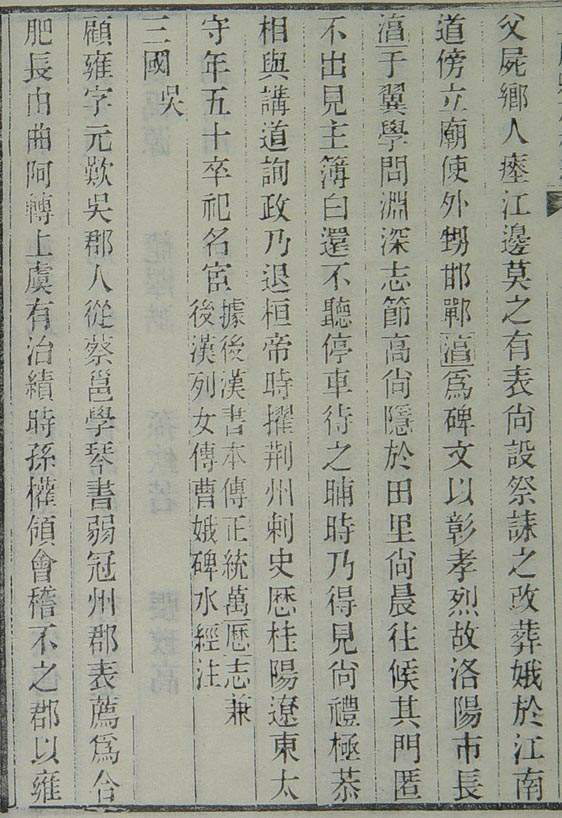 父屍鄉人瘞江邊莫之有表尙設祭誄之改葬娥於江南
道傍立廟使外甥邯鄲淳爲碑文以彰孝烈故洛陽市長
淳于翼學問淵深志節高尙隱於田里尙晨往候其門匿
不出見主簿白還不聽停車待之晡時乃得見尙禮極恭
相與講道詢政乃退桓帝時擢荆州刺史歷桂陽遼東太
守年五十卒祀名宦據後漢書本傳正統萬歷志兼
後漢列女傳曹娥碑水經注
三國吳
顧雍字元歎吳郡人從蔡邕學琴書弱冠州郡表薦爲合
肥長由曲阿轉上虞有治績時孫權領會稽不之郡以雍